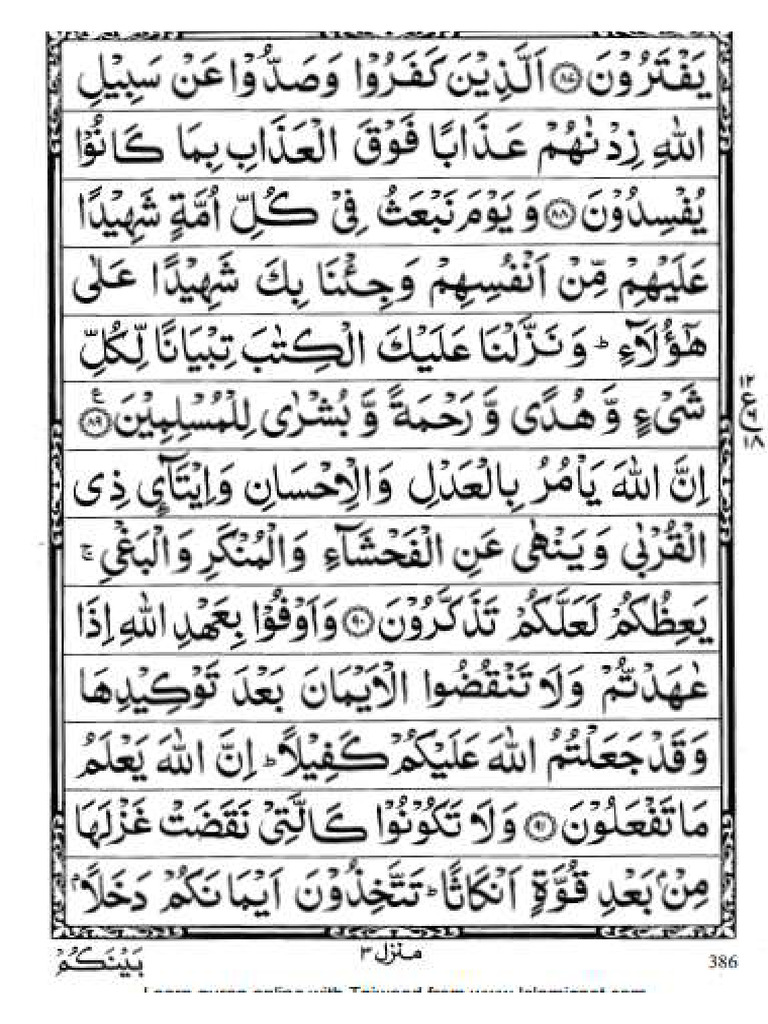 يَفۡتَرُوۡنَ ﴿۸۷﴾ اَلَّذِيۡنَ كَفَرُوۡا وَصَدُّوۡا عَنۡ سَبِيۡلِ
اللّٰهِ زِدۡنٰهُمۡ عَذَابًا فَوۡقَ الۡعَذَابِ بِمَا كَانُوۡا
يُفۡسِدُوۡنَ ﴿۸۸﴾ وَ يَوۡمَ نَبۡعَثُ فِىۡ كُلِّ اُمَّةٍ شَهِيۡدًا
عَلَيۡهِمۡ مِّنۡ اَنۡفُسِهِمۡ وَجِئۡنَا بِكَ شَهِيۡدًا عَلٰى
هٰٓؤُلَاۤءِ‌ؕ وَ نَزَّلۡنَا عَلَيۡكَ الۡكِتٰبَ تِبۡيَانًا لِّكُلِّ
شَىۡءٍ وَّ هُدًى وَّ رَحۡمَةً وَّ بُشۡرٰى لِلۡمُسۡلِمِيۡنَ ﴿۸۹﴾ ع
۱۲
ع
۱۸
اِنَّ اللّٰهَ يَاۡمُرُ بِالۡعَدۡلِ وَالۡاِحۡسَانِ وَاِيۡتَآىِٕ ذِى
الۡقُرۡبٰى وَ يَنۡهٰى عَنِ الۡفَحۡشَآءِ وَالۡمُنۡكَرِ وَالۡبَغۡىِ‌ۚ
يَعِظُكُمۡ لَعَلَّكُمۡ تَذَكَّرُوۡنَ ﴿۹۰﴾ وَ اَوۡفُوۡا بِعَهۡدِ اللّٰهِ اِذَا
عٰهَدْتُّمۡ وَلَا تَنۡقُضُوا الۡاَيۡمَانَ بَعۡدَ تَوۡكِيۡدِهَا
وَ قَدۡ جَعَلۡتُمُ اللّٰهَ عَلَيۡكُمۡ كَفِيۡلًا‌ؕ اِنَّ اللّٰهَ يَعۡلَمُ
مَا تَفۡعَلُوۡنَ ﴿۹۱﴾ وَلَا تَكُوۡنُوۡا كَالَّتِىۡ نَقَضَتۡ غَزۡلَهَا
مِنۡۢ بَعۡدِ قُوَّةٍ اَنۡكَاثًا‌ؕ تَتَّخِذُوۡنَ اَيۡمَانَكُمۡ دَخَلًاۢ
بَيۡنَكُمۡ
منزل ۳
386
Learn quran online with Tajweed from www.Islamicnet.com